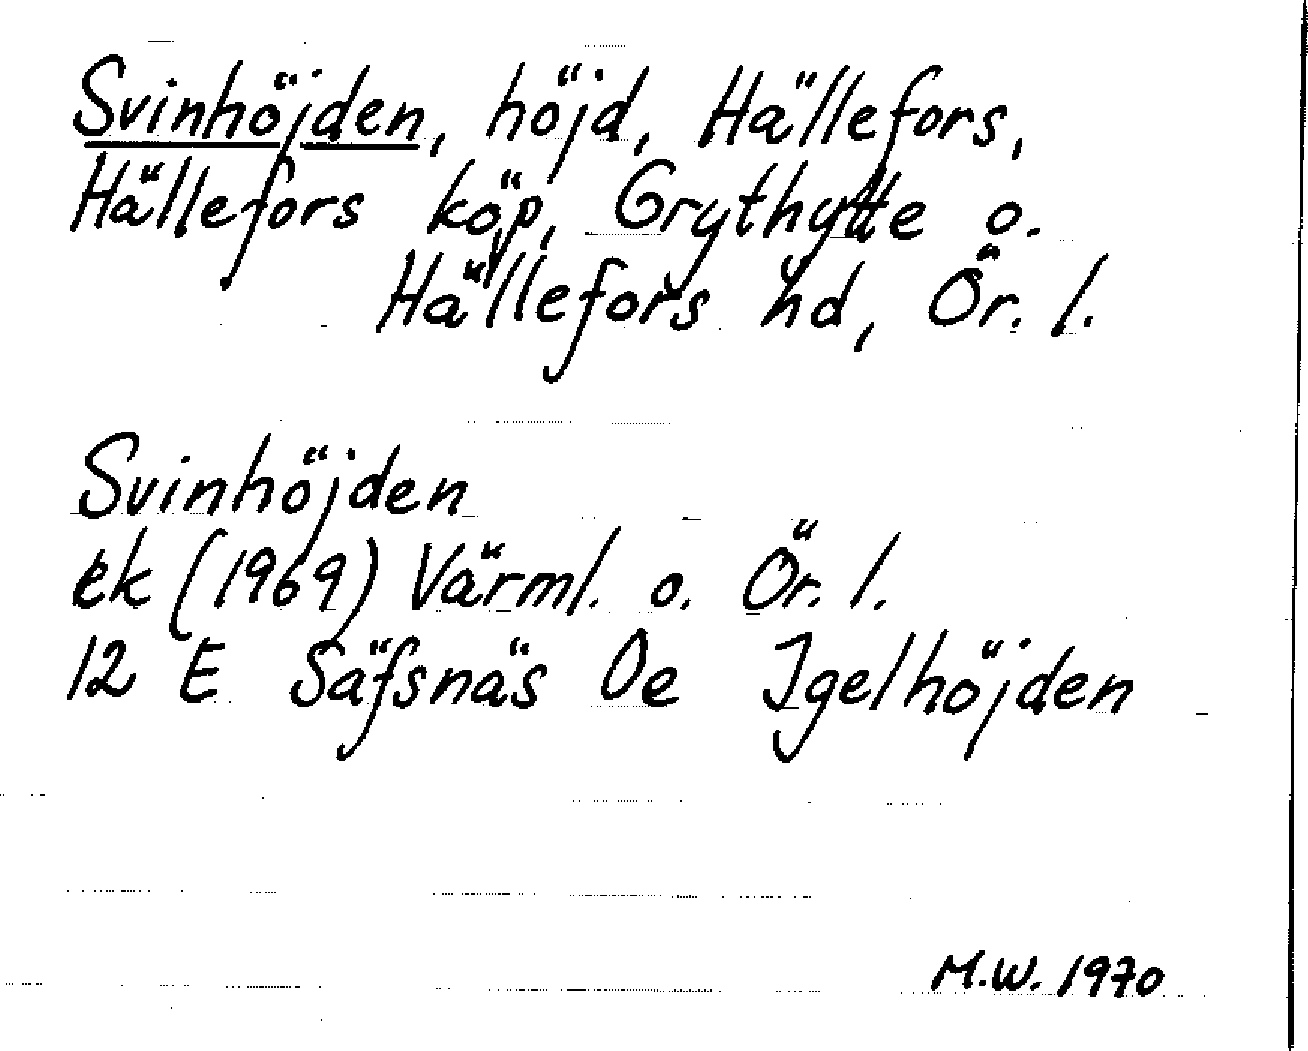 Svinhöjden, höjd, Hällefors,
Hällefors köp, Grythytte o.
Hällefors hd, Ör. l.
Svinhöjden
ek (1969) Värml. o. Ör. l.
12 E Säfsnäs 0e Igelhöjden
M.W. 1970